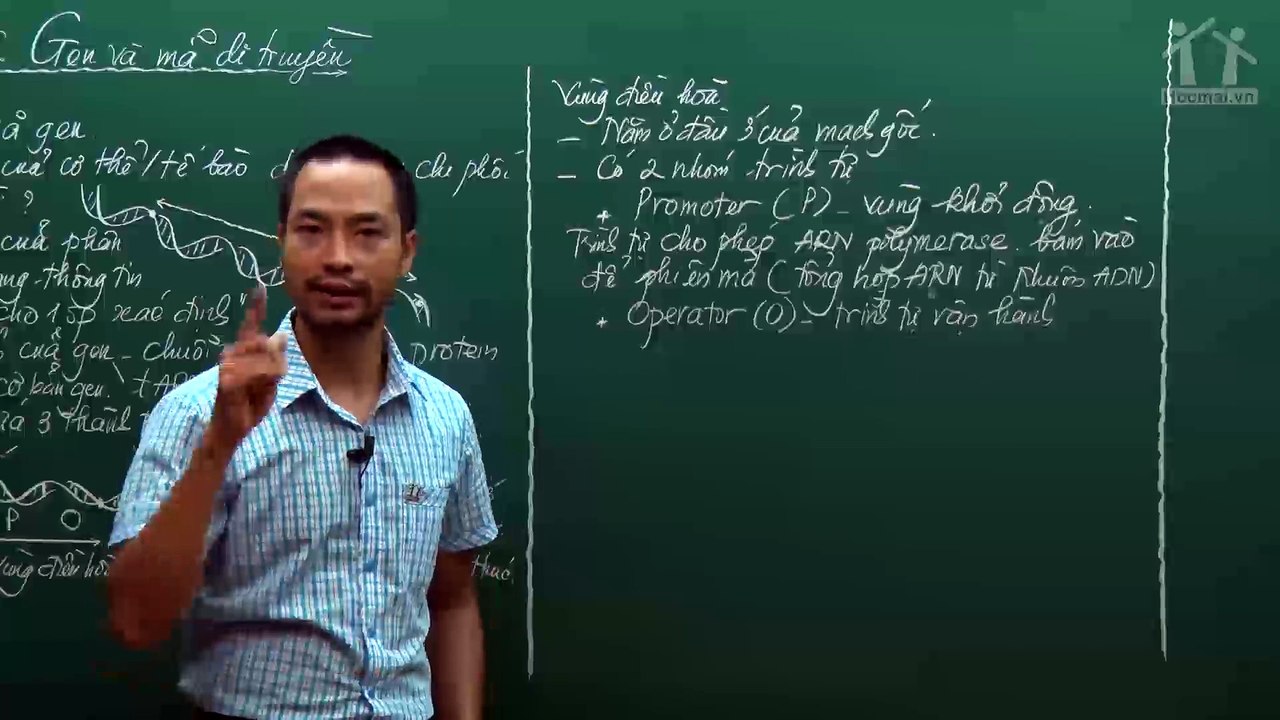 Gen và mã di truyền
gen.
của cơ thể/tế bào chi phối
?
của phân
thông tin
cho 1 sp xác định"
của gen - chuỗi Protein
cơ bản gen. tARN
3 thành
P O
Vùng điều hoà
Vùng điều hoà
- Nằm ở đầu 3' của mạch gốc.
- Có 2 nhóm trình tự
+ Promoter (P) - vùng khởi động.
Trình tự cho phép ARN polymerase bám vào
để phiên mã (tổng hợp ARN từ khuôn ADN)
+ Operator (O) - trình tự vận hành
hocmai.vn